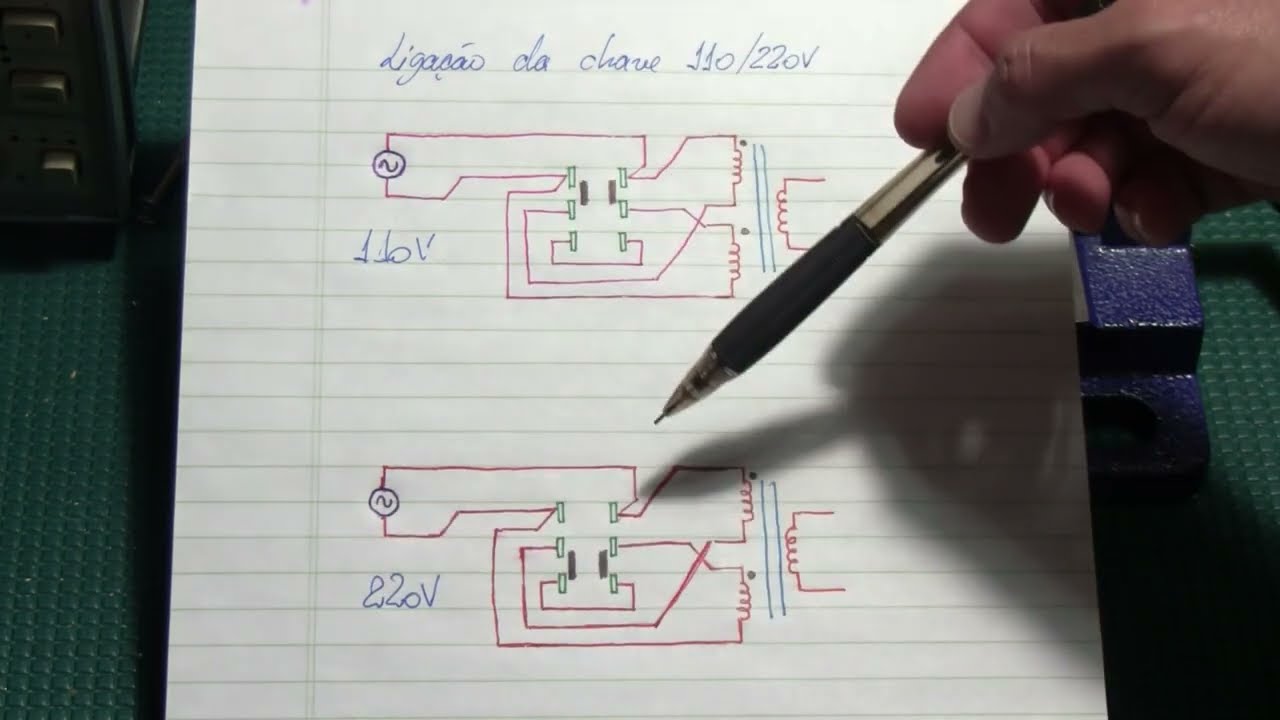 Ligação da chave 110/220V
110V
220V